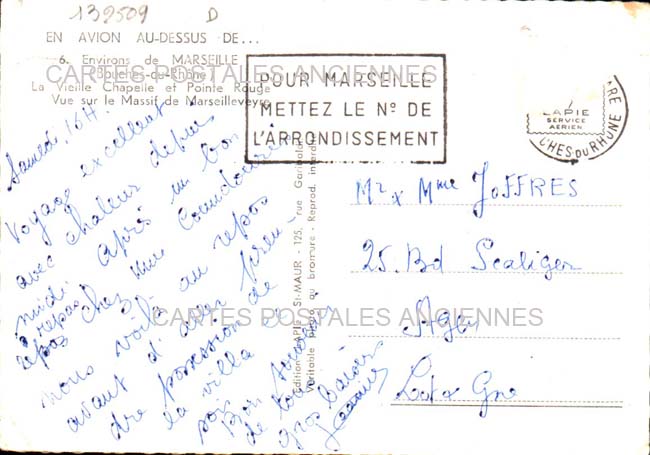 132509 D
EN AVION AU-DESSUS DE...
6. Environs de MARSEILLE
(Bouches-du-Rhône)
La Vieille Chapelle et Pointe Rouge
Vue sur le Massif de Marseilleveyre
CARTES POSTALES ANCIENNES
POUR MARSEILLE
METTEZ LE Nº DE
L'ARRONDISSEMENT
LAPIE
SERVICE
AERIEN
CHES DU RHONE
Samedi, 16H.
Voyage excellent
avec chaleur depuis
midi. Après un bon
repas
repas chez Mme
nous voilà au repos
avant d'aller pren-
dre possession de
la villa
soir
Bon
de tous
gros baisers
Jeanine
Edition LAPIE - St-MAUR - 125, rue Garibaldi
Véritable photo au bromure - Reprod. interdite
Mr x Mme JOFFRES
25. Bd Scaliger
Agen
Lot x Gne
CARTES POSTALES ANCIENNES